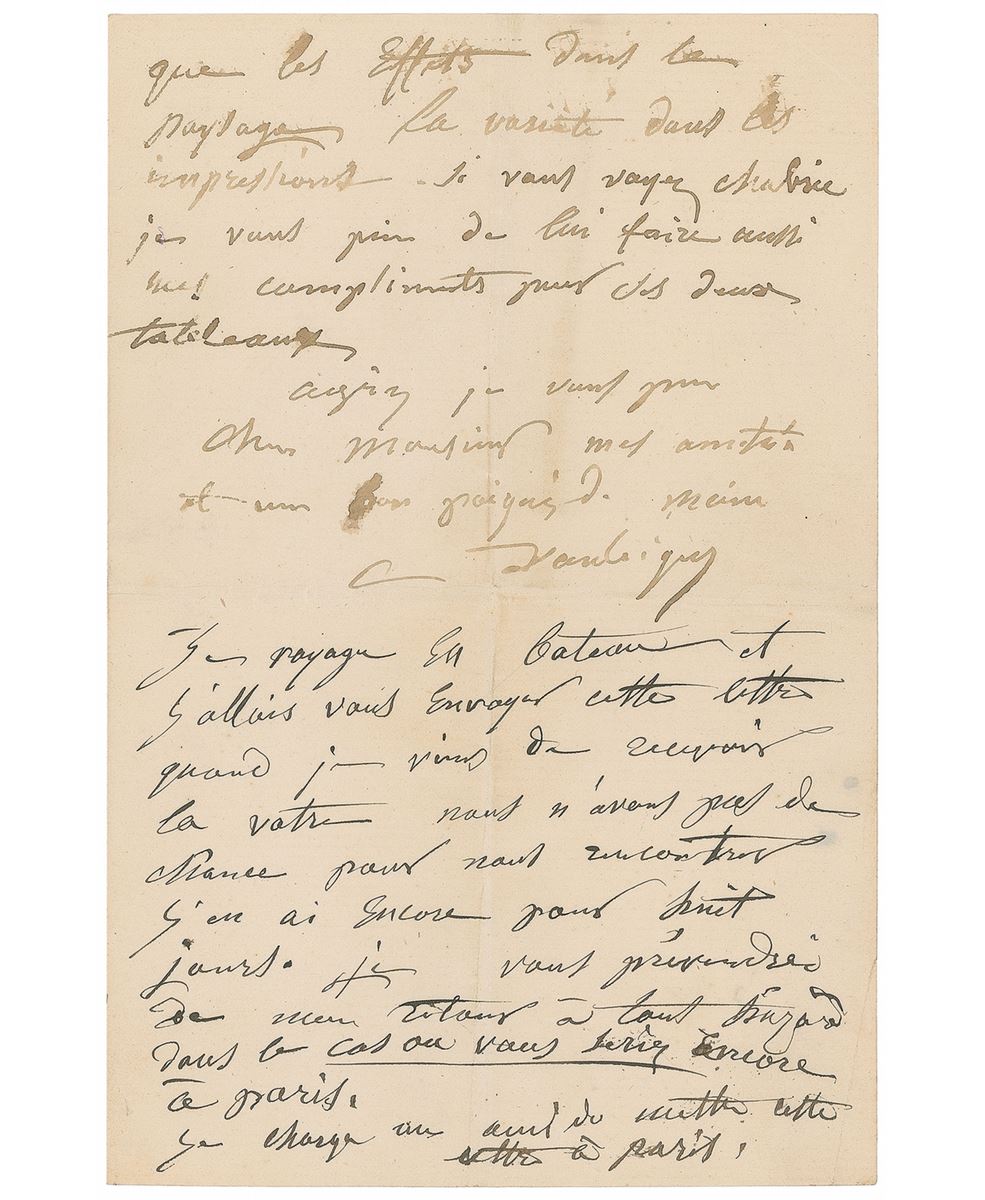 que les Effets dans le
paysage la varieté dans les
impressions. si vous voyez
je vous prie de lui faire aussi
mes compliments pour ses deux
tableaux
agréez je vous prie
cher monsieur mes amitiés
et une bon poignée de main
C Daubigny
Je voyage En bateau et
j'allais vous Envoyer cette lettre
quand je viens de recevoir
la votre nous n'avons pas de
chance pour nous rencontrer
j'en ai Encore pour huit
jours. je vous préviendrai
de mon retour à tout hazard
dans le cas ou vous seriez Encore
à paris.
Je charge un ami de mettre cette
lettre à paris.